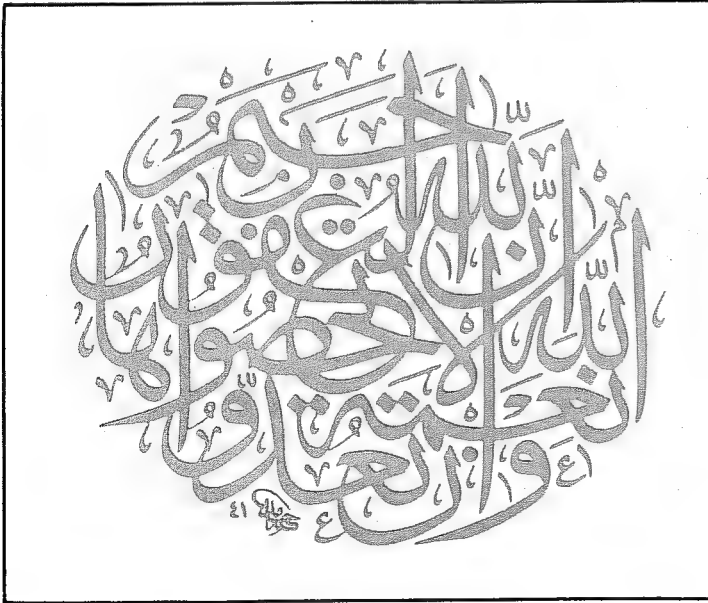 وَإِن تَعُدُّوا نِعْمَةَ اللَّهِ لَا تُحْصُوهَا إِنَّ اللَّهَ لَغَفُورٌ رَّحِيمٌ
٤١